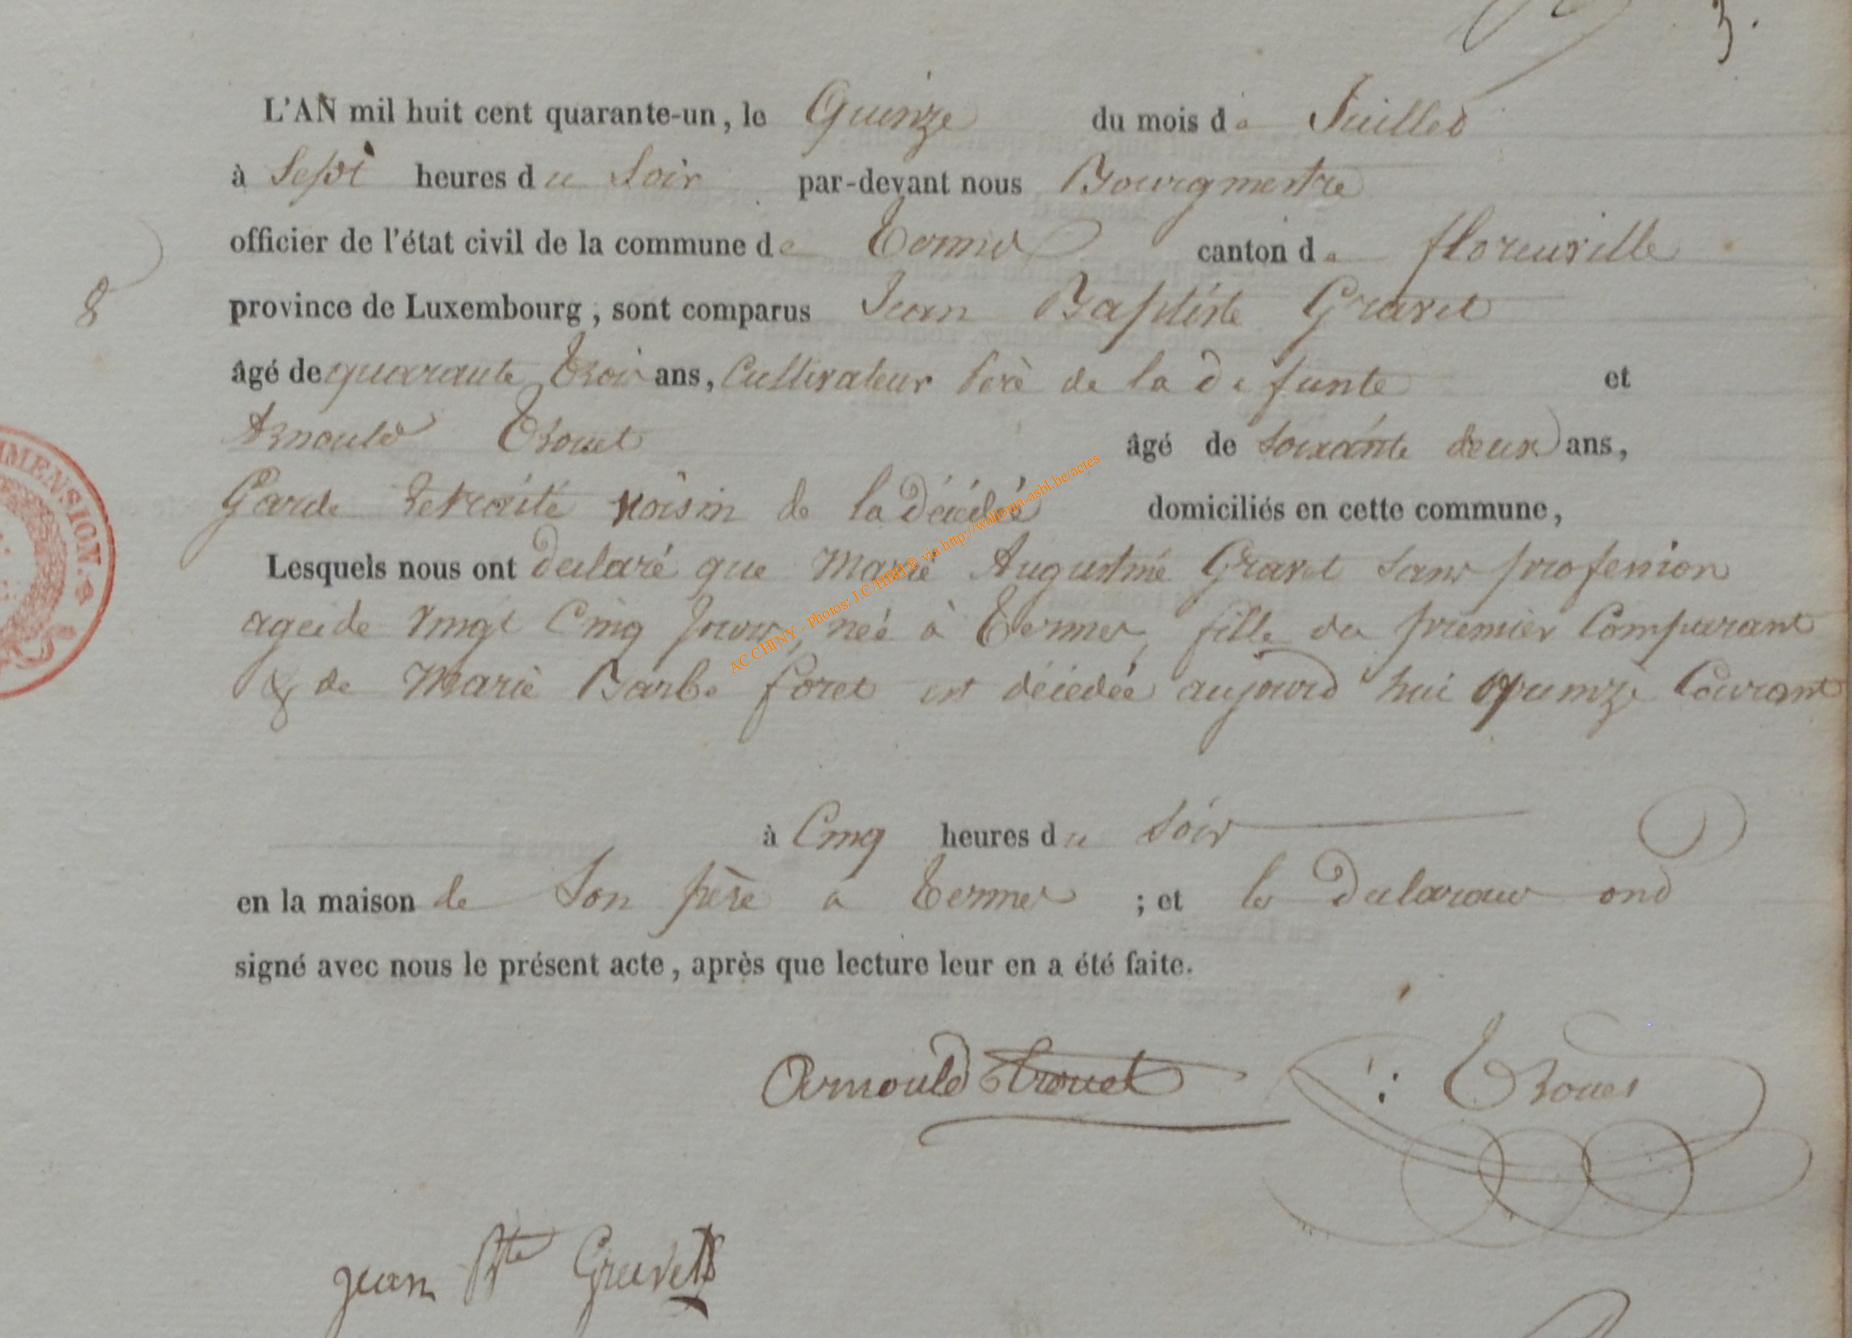 3.
L'AN mil huit cent quarante-un, le Quinze du mois de Juillet
à Sept heures du Soir par-devant nous Bourgmestre
officier de l'état civil de la commune de Termes canton de florenville
8
province de Luxembourg, sont comparus Jean Baptiste Gravet
âgé de quarante trois ans, Cultivateur père de la defunte et
Arnould Trouet âgé de soixante deux ans,
Garde Retraité voisin de la décédé domiciliés en cette commune,
Lesquels nous ont declaré que Marie Augustine Gravet sans profession
ageé de vingt Cinq jours, neé à Termes, fille du premier Comparant
& de Marie Barbe foret est décedeé aujourd'hui quinze Courant
à Cinq heures du Soir
en la maison de Son père a Termes ; et les declarans ont
signé avec nous le présent acte, après que lecture leur en a été faite.
Arnould Trouet Trouet
jean Bte Gravet
MENSION. &
AC CHINY - Photos: J.C. via http://wallonia-asbl.be/actes